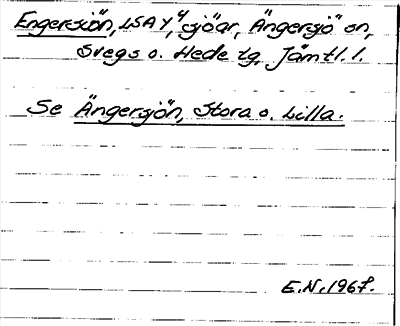 Engersjön, LSA Y, sjöar, Ängersjö sn,
Svegs o. Hede tg, Jämtl. l.
Se Ängersjön, Stora o. Lilla.
E.N. 1967.